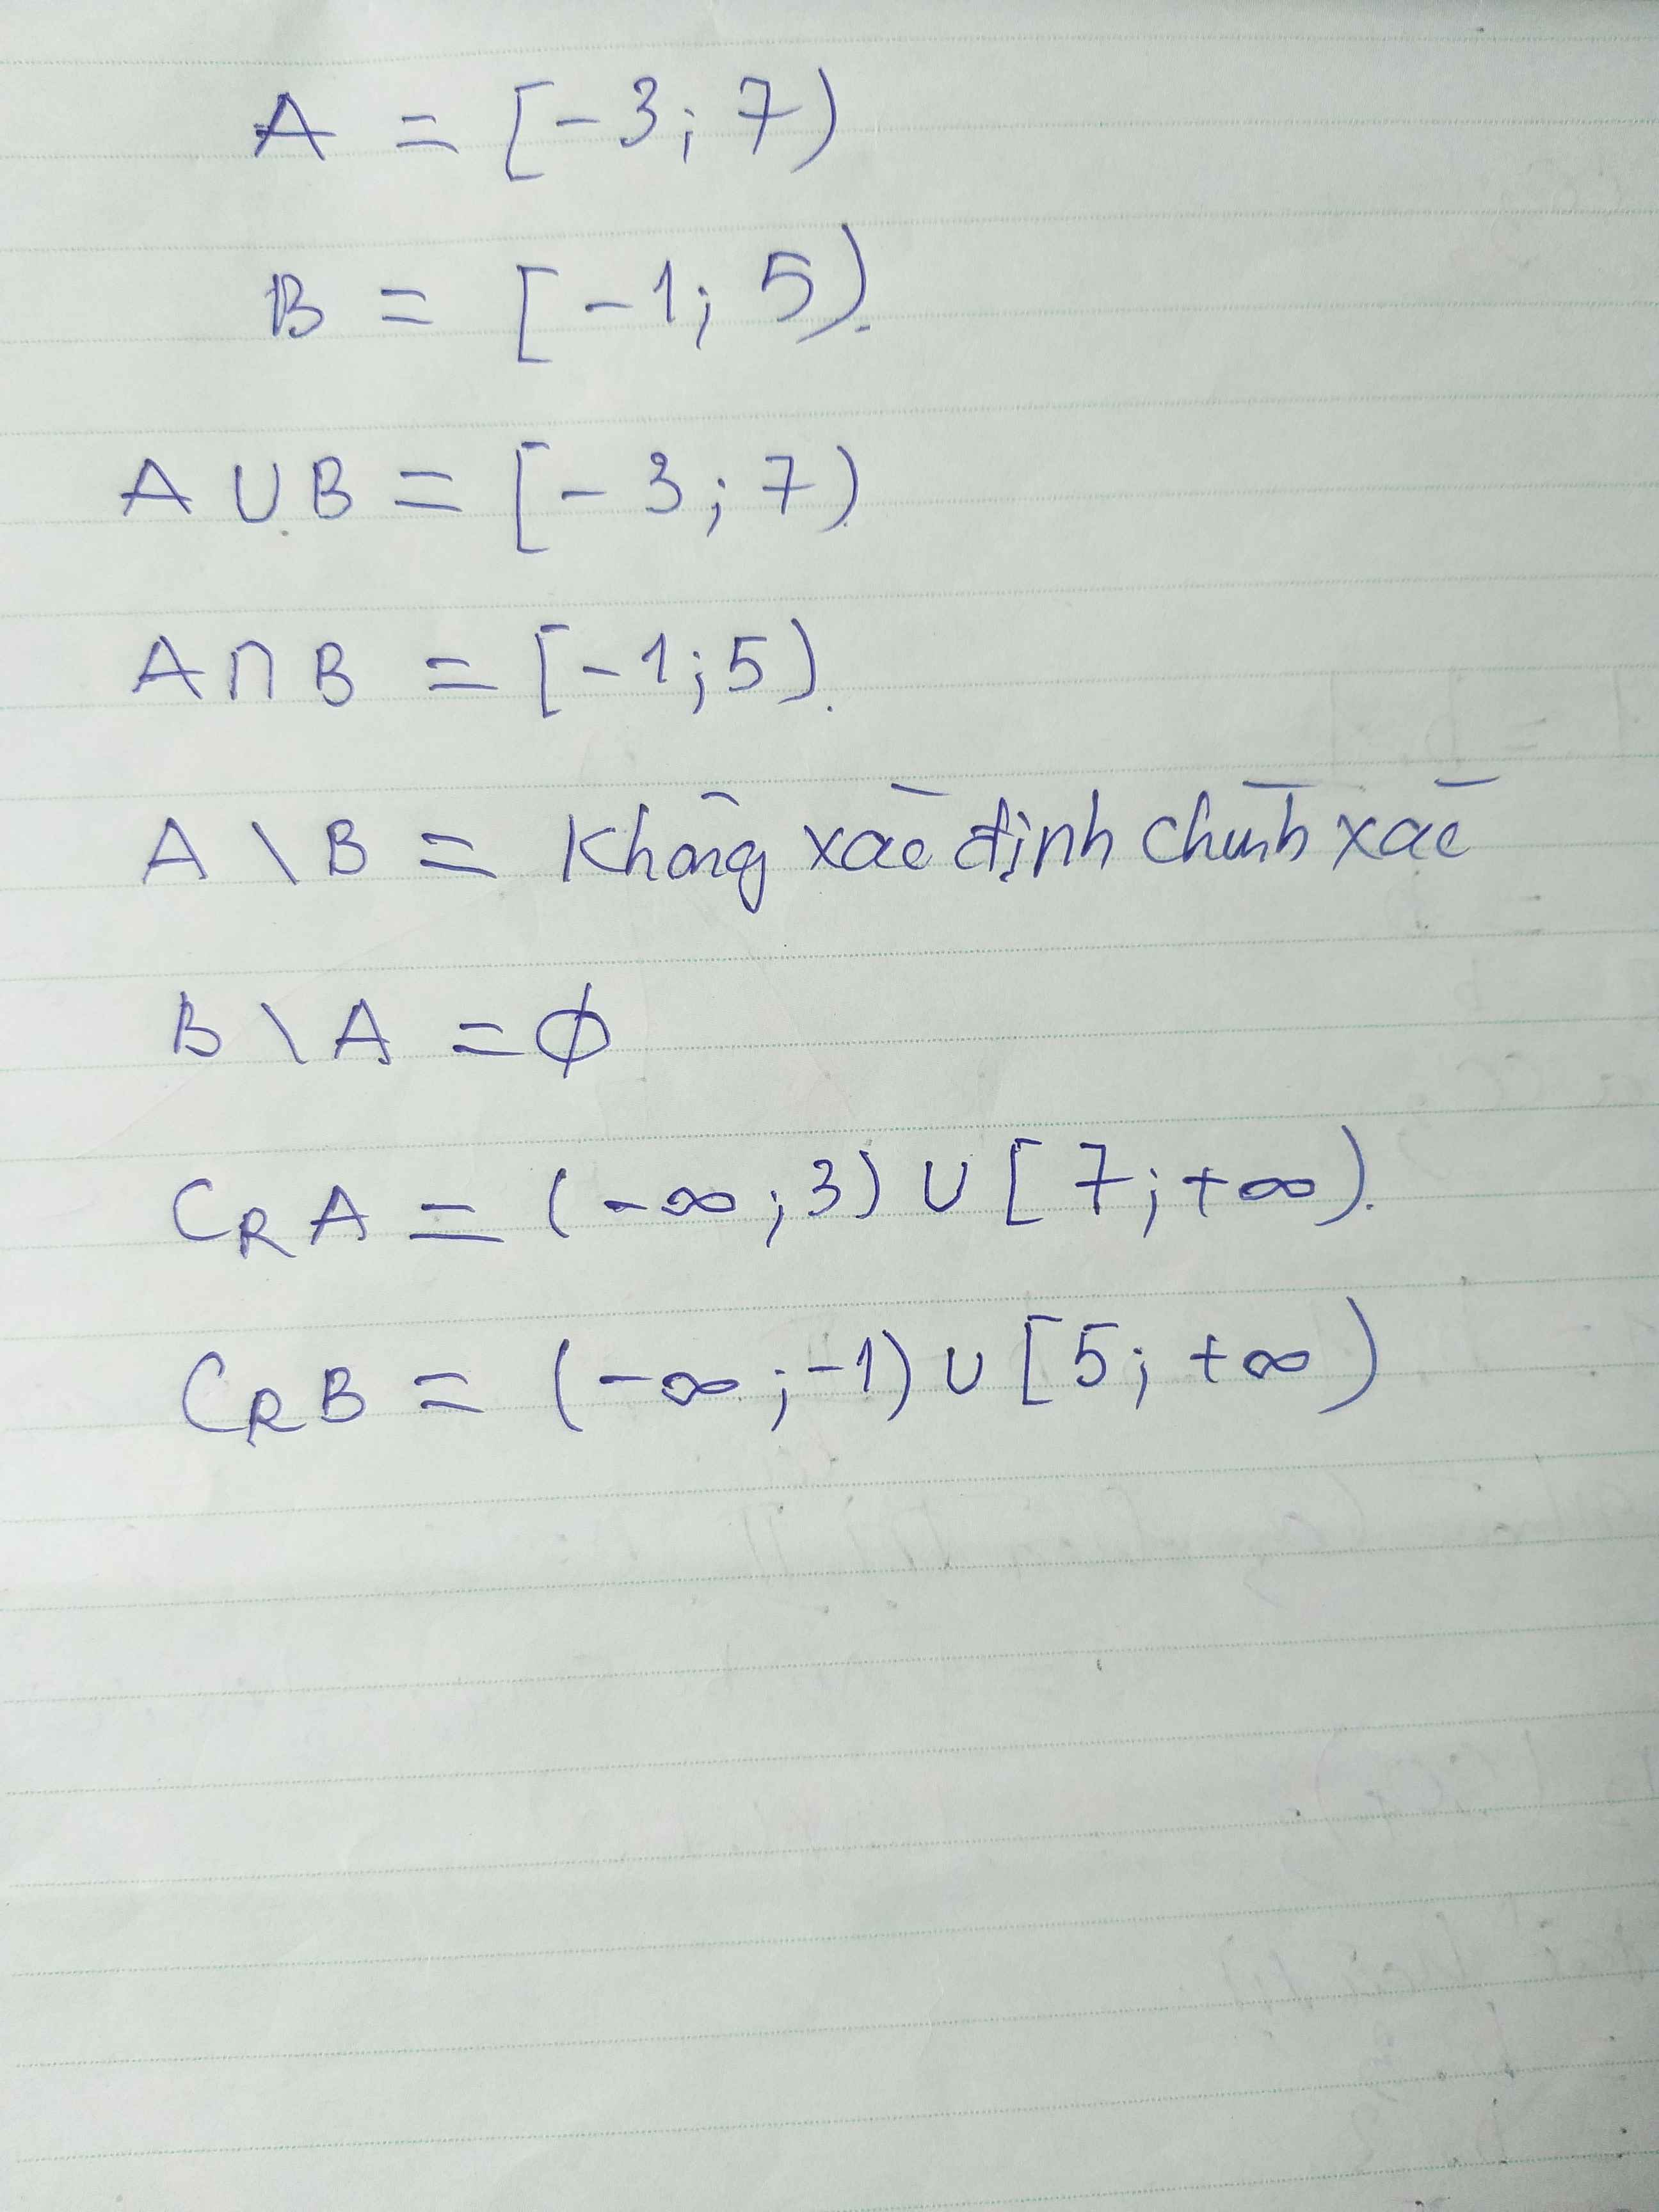 A = [-3; 7)
B = [-1; 5).
A ∪ B = [-3; 7)
A ∩ B = [-1; 5).
A \ B = Không xác định chính xác
B \ A = ∅
CRA = (-∞; 3) ∪ [7; +∞).
CRB = (-∞; -1) ∪ [5; +∞)